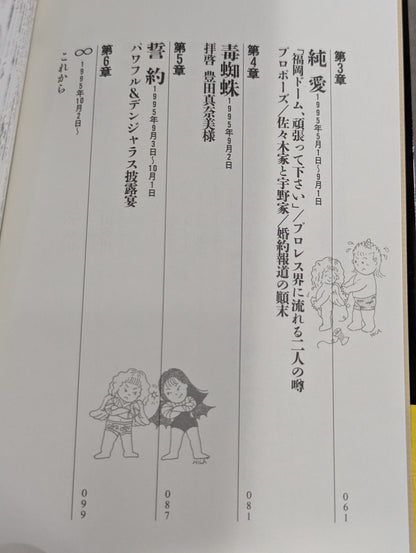 第3章
純愛 1995年5月1日〜9月1日
「福岡ドーム、頑張って下さい」/プロレス界に流れる二人の噂
プロポーズ/佐々木家と宇野家/婚約報道の顚末
061
第4章
毒蜘蛛 1995年9月2日
拝啓 豊田真奈美様
081
第5章
誓約 1995年9月3日〜10月1日
パワフル&デンジャラス披露宴
087
第6章
∞ 1995年10月2日〜
これから
099